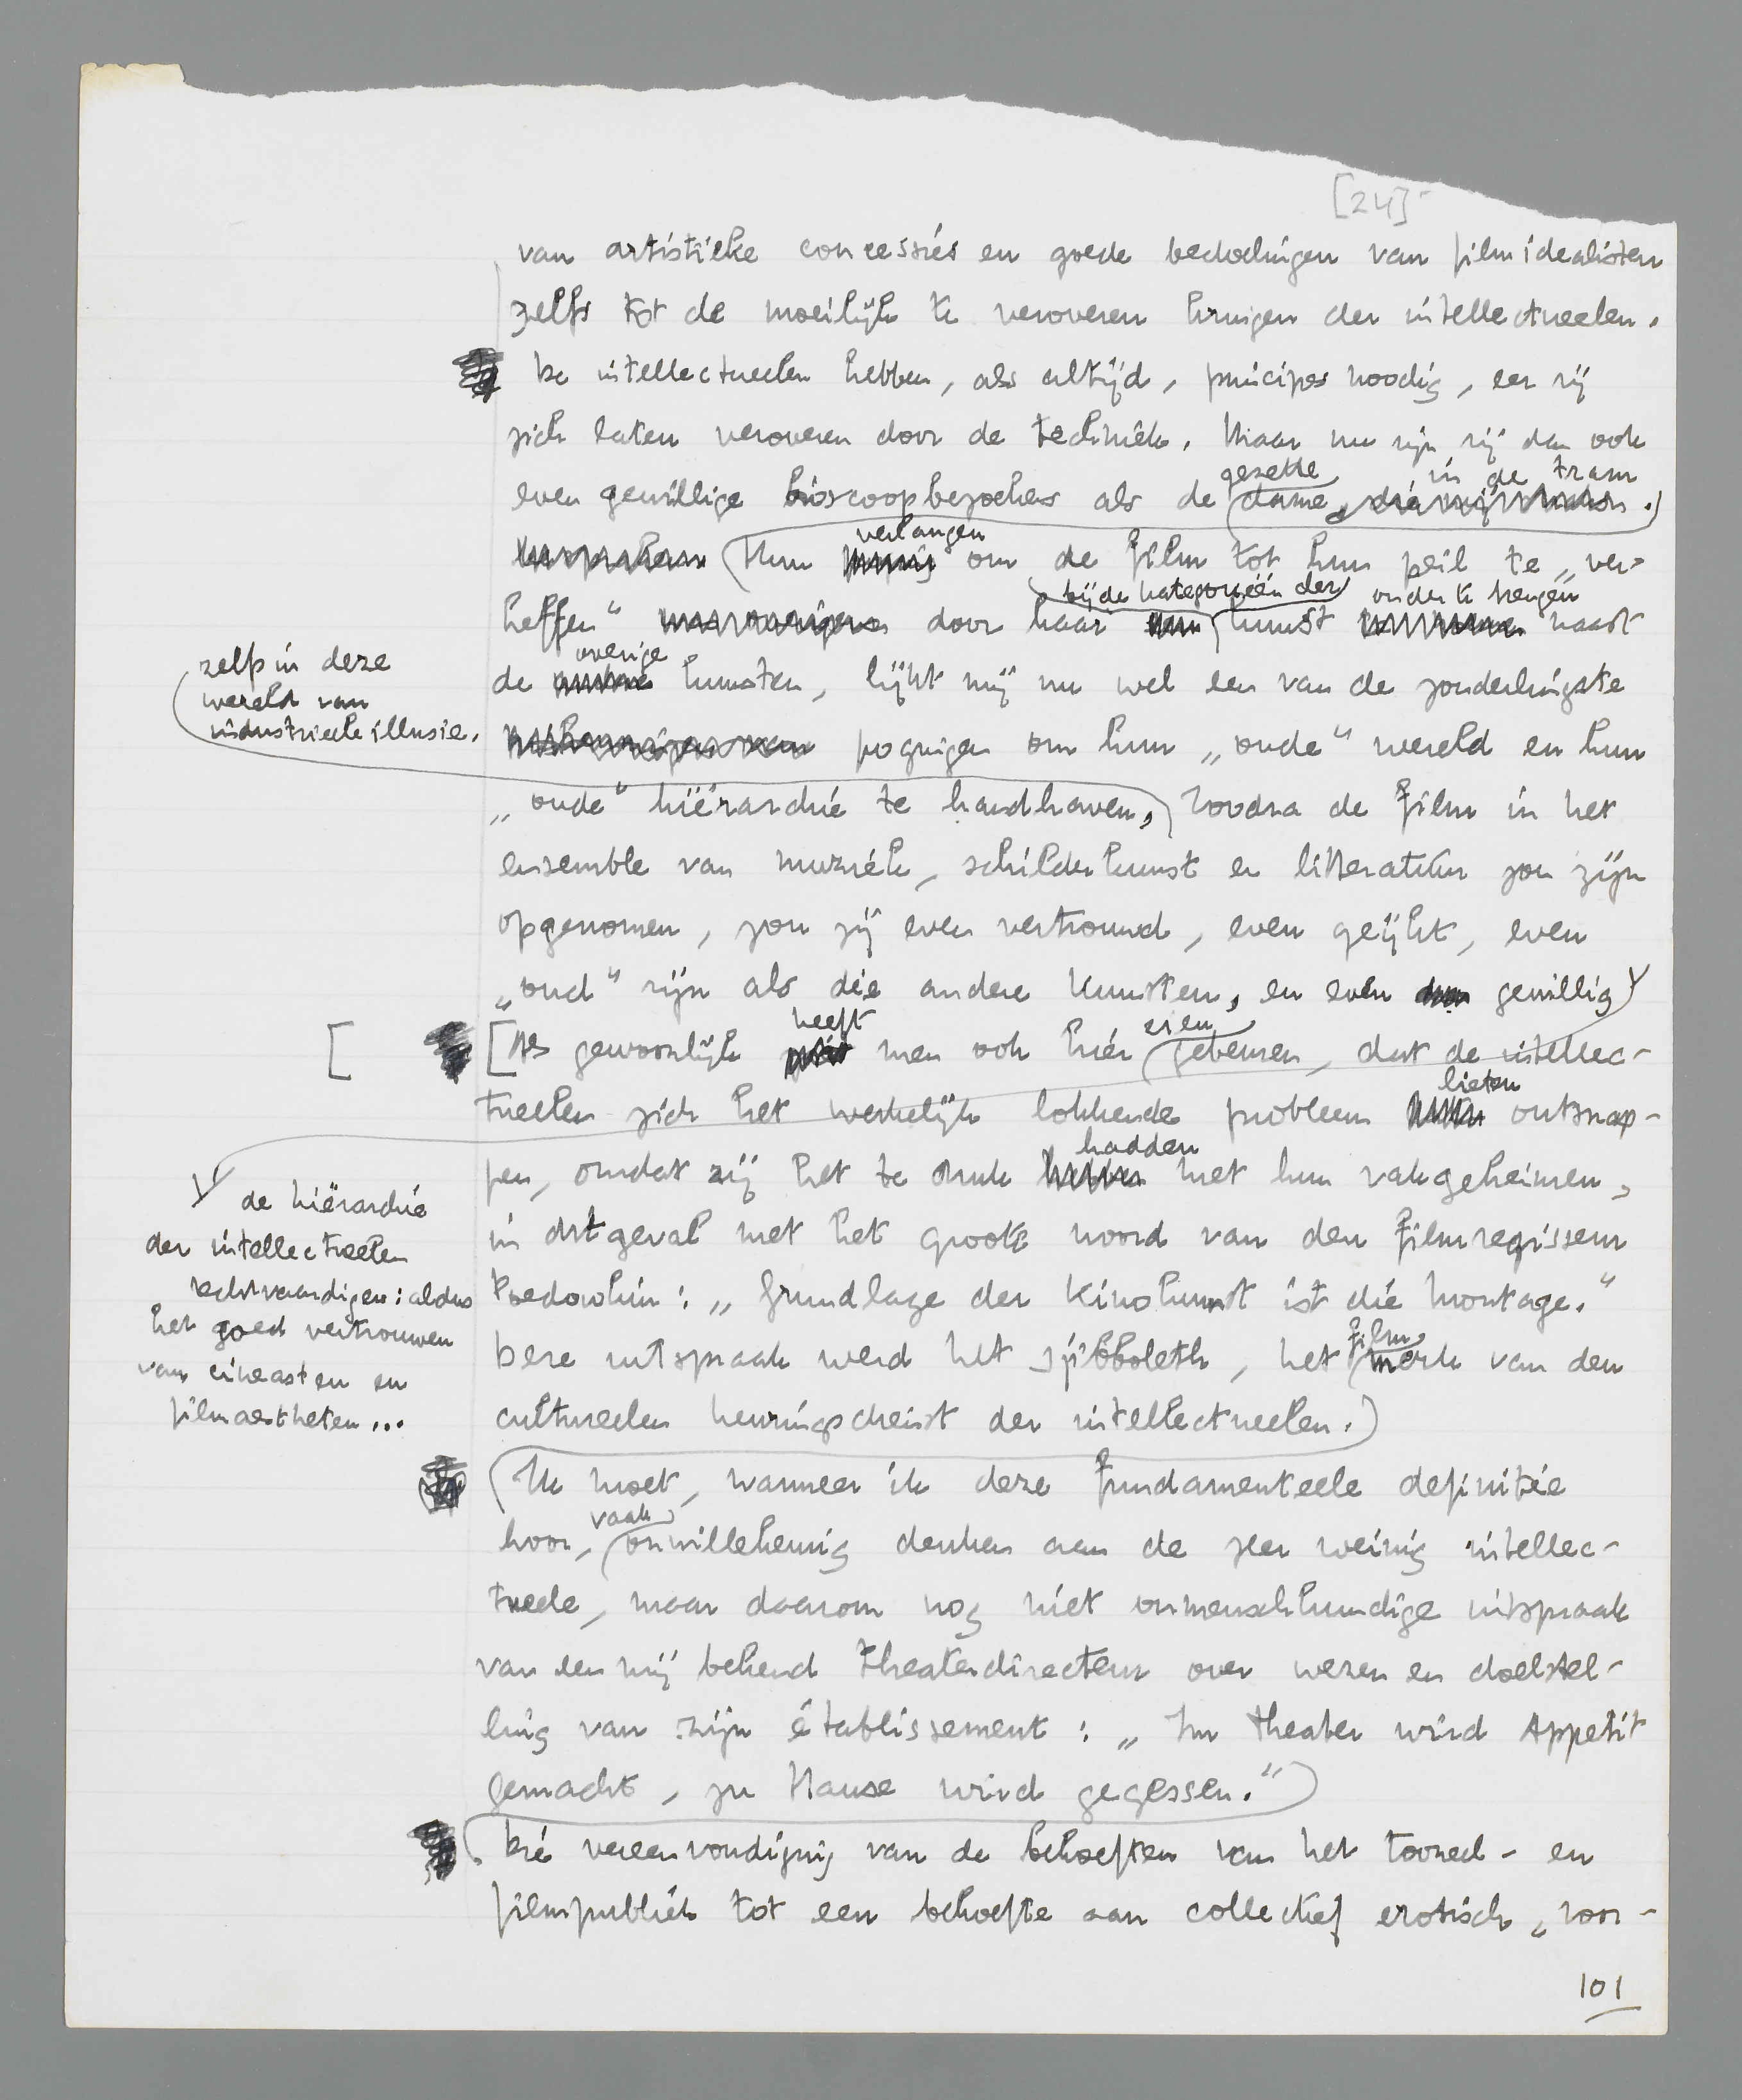 [24]
van artistieke concessies en goede bedoelingen van filmidealisten
zelfs tot de moeilijk te veroveren kringen der intellectueelen.
De intellectueelen hebben, als altijd, principes noodig, eer zij
zich laten veroveren door de techniek. Maar nu zijn zij dan ook
gezette in de tram
even gewillige bioscoopbezoekers als de dame
verlangen
Hun om de film tot hun peil te „ver-
bij de kategorieën der onder te brengen
heffen" door haar kunst naast
overige
de kunsten, lijkt mij nu wel een van de zonderlingste
zelfs in deze
wereld van
industrieele illusie.
pogingen om hun „oude" wereld en hun
„oude" hiërarchie te handhaven, Zoodra de film in het
ensemble van muziek, schilderkunst en litteratuur zou zijn
opgenomen, zou zij even vertrouwd, even geijkt, even
„oud" zijn als die andere kunsten, en even gewillig
heeft er en
[ [Als gewoonlijk men ook hier gebeuren, dat de intellec-
lieten
tueelen zich het werkelijk lokkende probleem ontsnap-
hadden
pen, omdat zij het te druk met hun vakgeheimen,
de hiërarchie
der intellectueelen
rechtvaardigen: aldus
het goed vertrouwen
van cineasten en
filmaestheten...
in dit geval met het groote woord van den filmregisseur
Poedowkin: „Grundlage der Kinokunst ist die Montage."
film
Deze uitspraak werd het sjibboleth, het merk van den
cultureelen keuringsdienst der intellectueelen.)
(Ik moet, wanneer ik deze fundamenteele definitie
vaak
hoor, onwillekeurig denken aan de zeer weinig intellec-
tueele, maar daarom nog niet onmenschkundige uitspraak
van een mij bekend theaterdirecteur over wezen en doelstel-
ling van zijn établissement: „Im Theater wird Appetit
gemacht, zu Hause wird gegessen.")
Die vereenvoudiging van de behoeften van het tooneel- en
filmpubliek tot een behoefte aan collectief erotisch „voor-
101